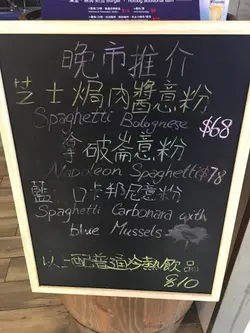 晚市推介
芝士焗肉醬意粉
Spaghetti Bolognese $68
拿破崙意粉
Napoleon Spaghetti $78
藍 口卡邦尼意粉
Spaghetti Carbonara with
blue Mussels
以上配普通冷熱飲品
8/10